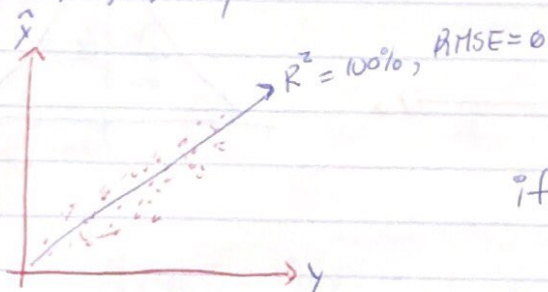 x̂
R² = 100%, RMSE = 0
if
y